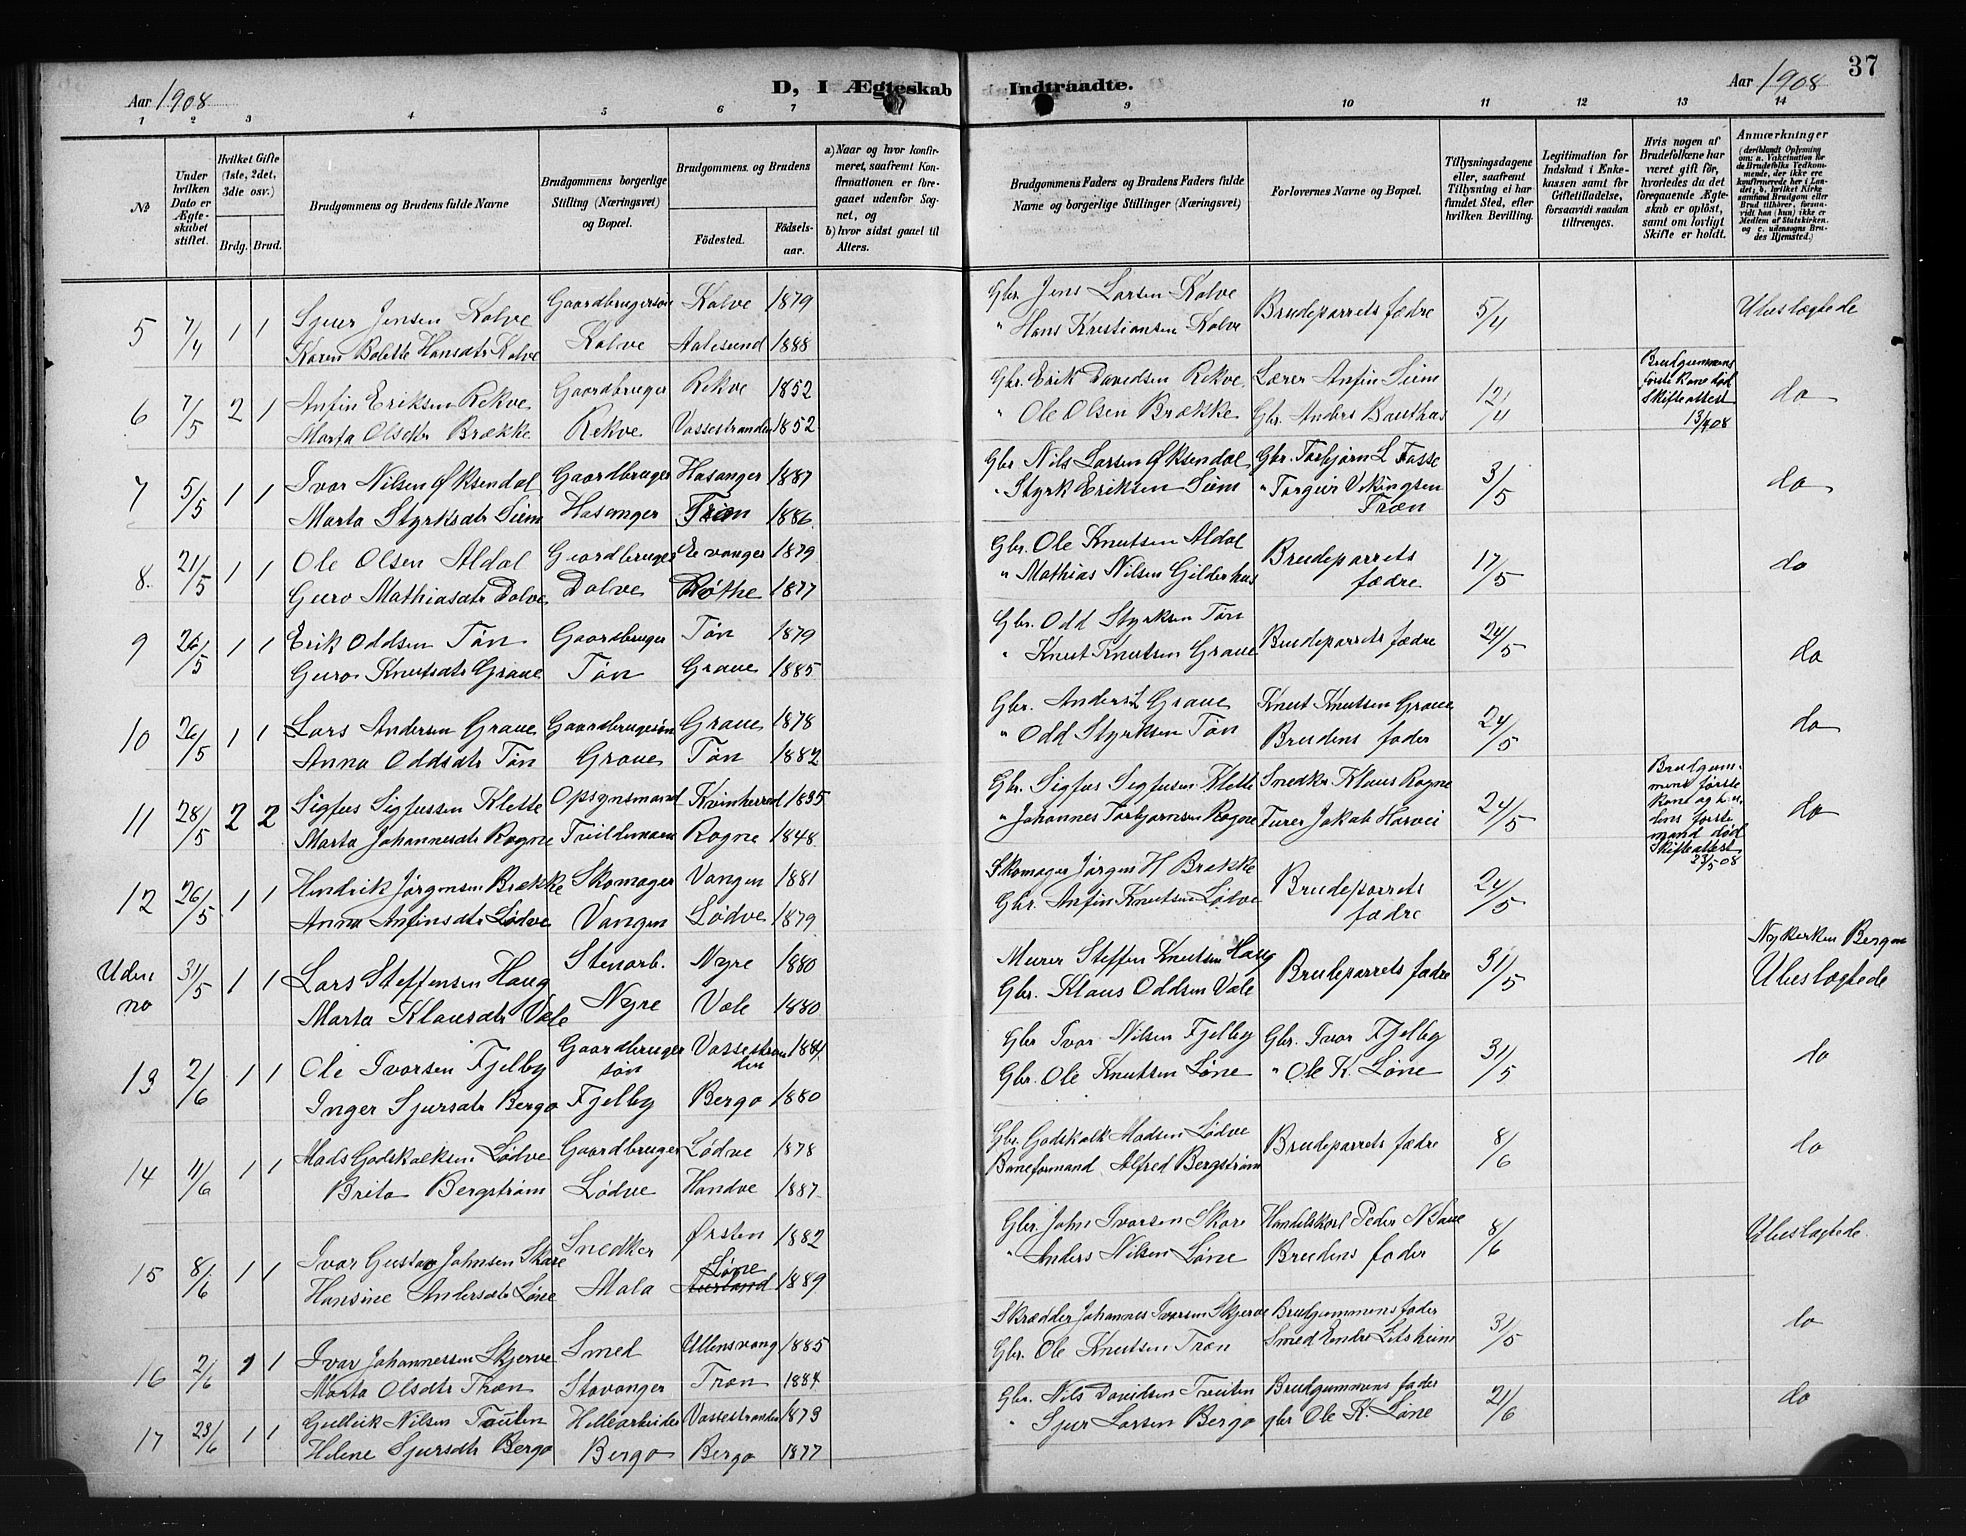 Aar 1908
D, I Ægteskab Indtraadte.
Aar 1908
37
1 2 3 4 5 6 7 9 10 11 12 13 14
No
Under hvilken Dato er Ægteskabet stiftet.
Hvilket Gifte (1ste, 2det, 3die osv.)
Brdg. Brud.
Brudgommens og Brudens fulde Navne
Brudgommens borgerlige Stilling (Næringsvei) og Bopæl.
Brudgommens og Brudens
Fødested.
Fødselsaar.
a) Naar og hvor konfirmeret, saafremt Konfirmationen er foregaaet udenfor Sognet, og
b) hvor sidst gaaet til Alters.
Brudgommens Faders og Brudens Faders fulde Navne og borgerlige Stillinger (Næringsvei)
Forlovernes Navne og Bopæl.
Tillysningsdagene eller, saafremt Tillysning ei har fundet Sted, efter hvilken Bevilling.
Legitimation for Indskud i Enkekassen samt for Giftetilladelse, forsaavidt saadan tiltrænges.
Hvis nogen af Brudefolkene har været gift før, hvorledes da det foregaaende Ægteskab er opløst, samt om lovligt Skifte er holdt.
Anmærkninger
(deriblandt Oplysning om: a. Vaktination for de Brudefolks Vedkommende, der ikke ere konfirmerede her i Landet; b. hvilket Kirkesamfund Brudgom eller Brud tilhører, forsaavidt han (hun) ikke er Medlem af Statskirken, og c. udensogns Brudes Hjemsted.)
5 7/4 1 1 Sjur Jensen Kolve Gaardbrugersøn Kolve 1879 Gbr. Jens Larsen Kolve Brudeparrets fædre 5/4 Ubeslægtede
Karen Bolette Hansdtr Kolve Kolve Aalesund 1888 " Hans Kristiansen Kolve
6 7/5 2 1 Anfin Eriksen Rekve Gaardbruger Rekve 1852 Gbr. Erik Davidsen Rekve Lærer Anfin Siem 12/4 Brudgummens første kone død Skifteattest 13/4 08 do
Marta Olsdtr Brække Rekve Vossestranden 1852 " Ole Olsen Brække Gbr. Anders Bauthus
7 5/5 1 1 Ivar Nilsen Øksendal Gaardbruger Hosanger 1887 Gbr Nils Larsen Øksendal Gbr. Torbjørn L Fosse 3/5 do
Marta Styrksdtr Siem Hosanger Træn 1886 " Styrk Eriksen Siem " Torgeir Vikingsen Træn
8. 21/5 1 1 Ole Olsen Aldal Gaardbruger Evanger 1879 Gbr. Ole Knutsen Aldal Brudeparrets fædre 17/5 do
Guro Mathiasdtr Dolve Dolve Røthe 1877 " Mathias Nilsen Gilderhus
9 26/5 1 1 Erik Oddsen Tøn Gaardbruger Tøn 1879 Gbr. Odd Styrksen Tøn Brudeparrets fædre 24/5 do
Guro Knutsdtr Graue Tøn Graue 1885 " Knut Knutsen Graue
10 26/5 1 1 Lars Andersen Graue Gaardbrugersøn Graue 1878 Gbr. Anders L Graue Knut Knutsen Graue 24/5 do
Anna Oddsdtr Tøn Graue Tøn 1882 " Odd Styrksen Tøn Brudens fader
11 28/5 2 2 Sigfus Sigfussen Klette Opsynsmand Kvinherred 1835 Gbr. Sigfus Sigfusen Klette Snedker Klaus Rogne 24/5 Brudgummens første kone og brudens første mand død Skifteattest 23/5 08 do
Marta Johannesdtr Rogne Rogne 1848 " Johannes Torbjørnsen Rogne Furer Jakob Horvei
12 26/5 1 1 Hendrik Jørgensen Brække Skomager Vangen 1881 Skomager Jørgen H Brække Brudeparrets fædre 24/5
Anna Anfinsdtr Lødve Vangen Lødve 1879 Gbr. Anfin Knutsen Lødve
Uden no 31/5 1 1 Lars Steffensen Haug Stenarb. Nyre 1880 Murer Steffen Knutsen Haug Brudeparrets fædre 31/5 Nykirken Bergen Ubeslægtede
Marta Klausdtr Væle Nyre Væle 1880 Gbr. Klaus Oddsen Væle
13 2/6 1 1 Ole Ivarsen Fjelby Gaardbrugersøn Vossestranden 1884 Gbr Ivar Nilsen Fjelby Gbr. Ivar Fjelby 31/5 do
Inger Sjursdtr Bergo Fjelby Bergo 1880 Gbr. Ole Knutsen Løne " Ole K. Løne
14 11/6 1 1 Mads Godskalksen Lødve Gaardbruger Lødve 1878 Gbr. Godskalk Madsen Lødve Brudeparrets fædre 8/6 do
Brita Bergstrøm Lødve Handve 1887 Baneformand Alfred Bergstrøm
15 8/6 1 1 Ivar Gustav Johnsen Skare Snedker Ørsten 1882 Gbr. John Ivarsen Skare Handelskarl Peder N Bøe 8/6 Ubeslægtede
Hansine Andersdtr Løne Mala Løne Aurland 1889 " Anders Nilsen Løne Brudens fader
16 2/6 1 1 Ivar Johannessen Skjerve Smed Ullensvang 1885 Skrædder Johannes Ivarsen Skjerve Brudgummens fader 31/5 do
Marta Olsdtr Træn Stavanger Træn 1884 Gbr. Ole Knutsen Træn Smed Endre Litsheim
17 23/6 1 1 Gullick Nilsen Tveiten Vossestranden 1873 Gbr. Nils Davidsen Tveiten Brudgummens fader 21/6 do
Helene Sjursdtr Bergo Bergo Bergo 1877 " Sjur Larsen Bergo gbr Ole K. Løne